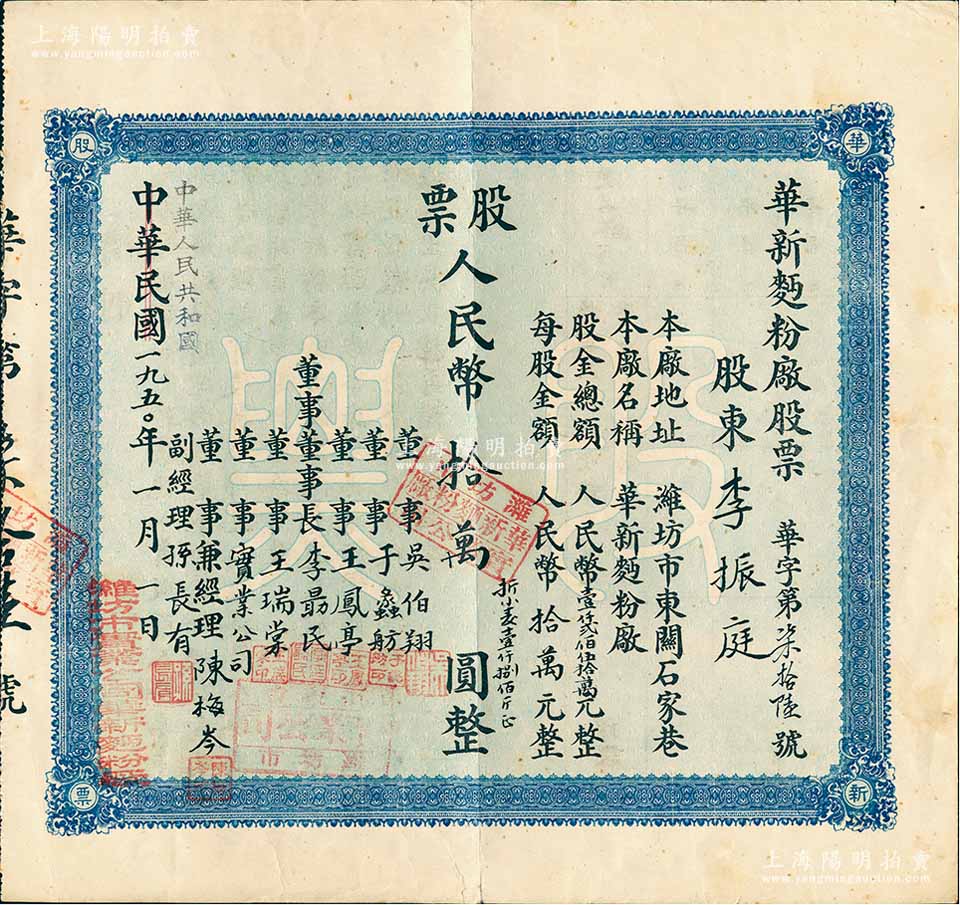 上海陽明拍賣
www.yangmingauction.com
華
新
股
票
華新麪粉廠股票 華字第柒拾陸號
股東李振庭
本廠地址 濰坊市東關石家巷
本廠名稱 華新麪粉廠
股金總額 人民幣壹仟貳佰伍拾萬元整
每股金額 人民幣拾萬元整
股票人民幣拾萬圓整
折小麦壹仟捌佰斤正
董事吳伯翔
董事于蠡舫
董事王鳳亭
董事董事長李勗民
董事王瑞棠
董事實業公司
董事兼經理陳梅岑
副經理孫長有
中華人民共和國
中華民國一九五〇年一月一日
濰坊市實業公司華新麵粉廠
上海陽明拍賣
www.yangmingauction.com
上海陽明拍賣
www.yangmingauction.com